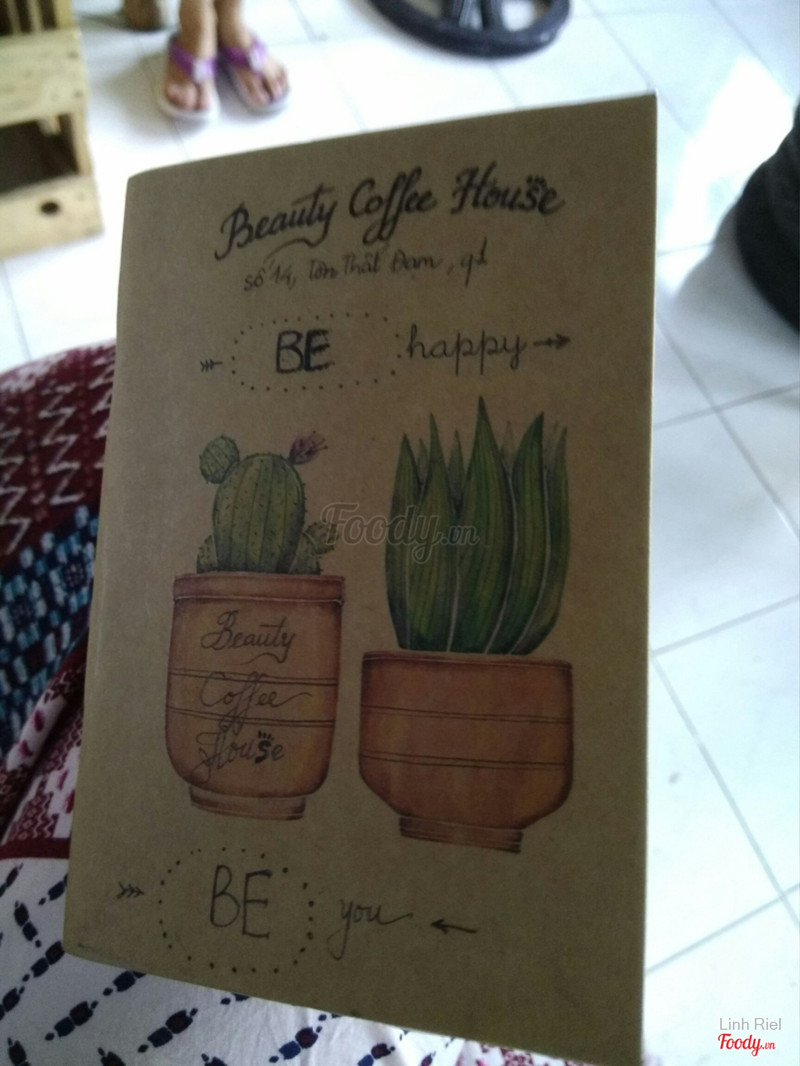 Beauty Coffee House
số 14, Tôn Thất Đạm, q1
BE happy
Foody.vn
Beauty
Coffee
House
BE you
Linh Riel
Foody.vn